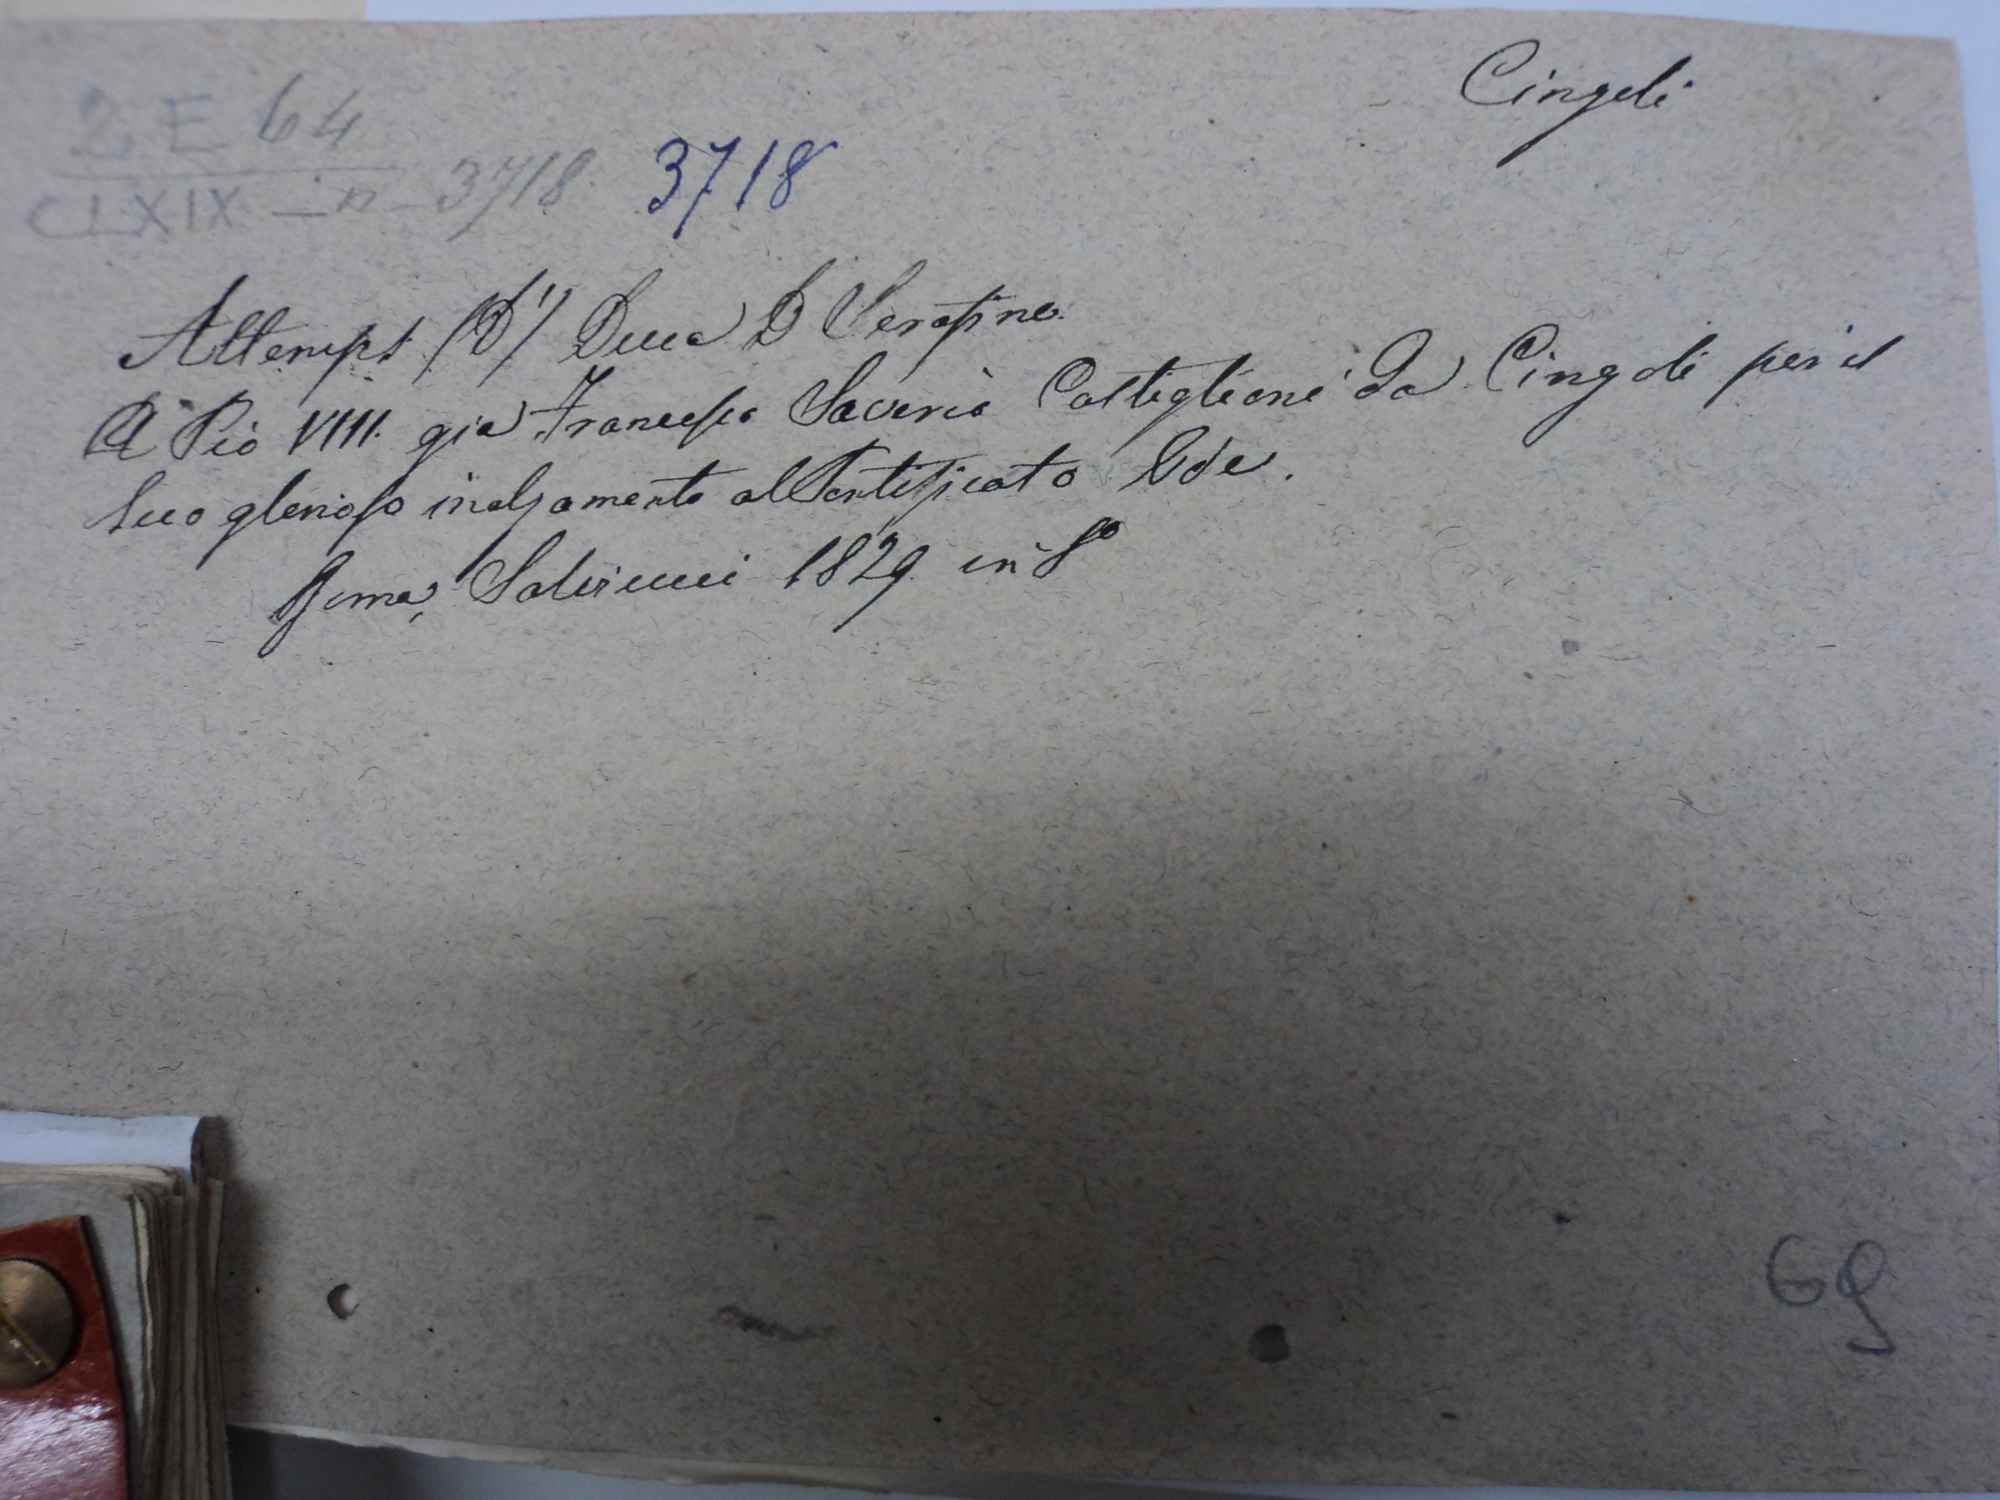 Cingoli
2 E 64
CLXIX - in - 3718 3718
Altemps (D') Duca D Serafino.
A Pio VIII. già Francesco Saverio Castiglioni da Cingoli per il
suo glorioso inalzamento al Pontificato Ode.
Roma, Salviucci 1829 in 8º
69